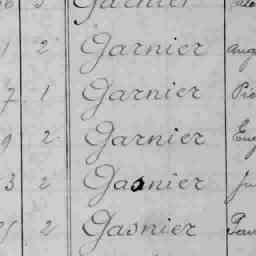 Garnier
1 2 Garnier Aug
7 1 Garnier Pie
9 2 Garnier Eug
3 2 Gasnier Ju
2 Gasnier Pau